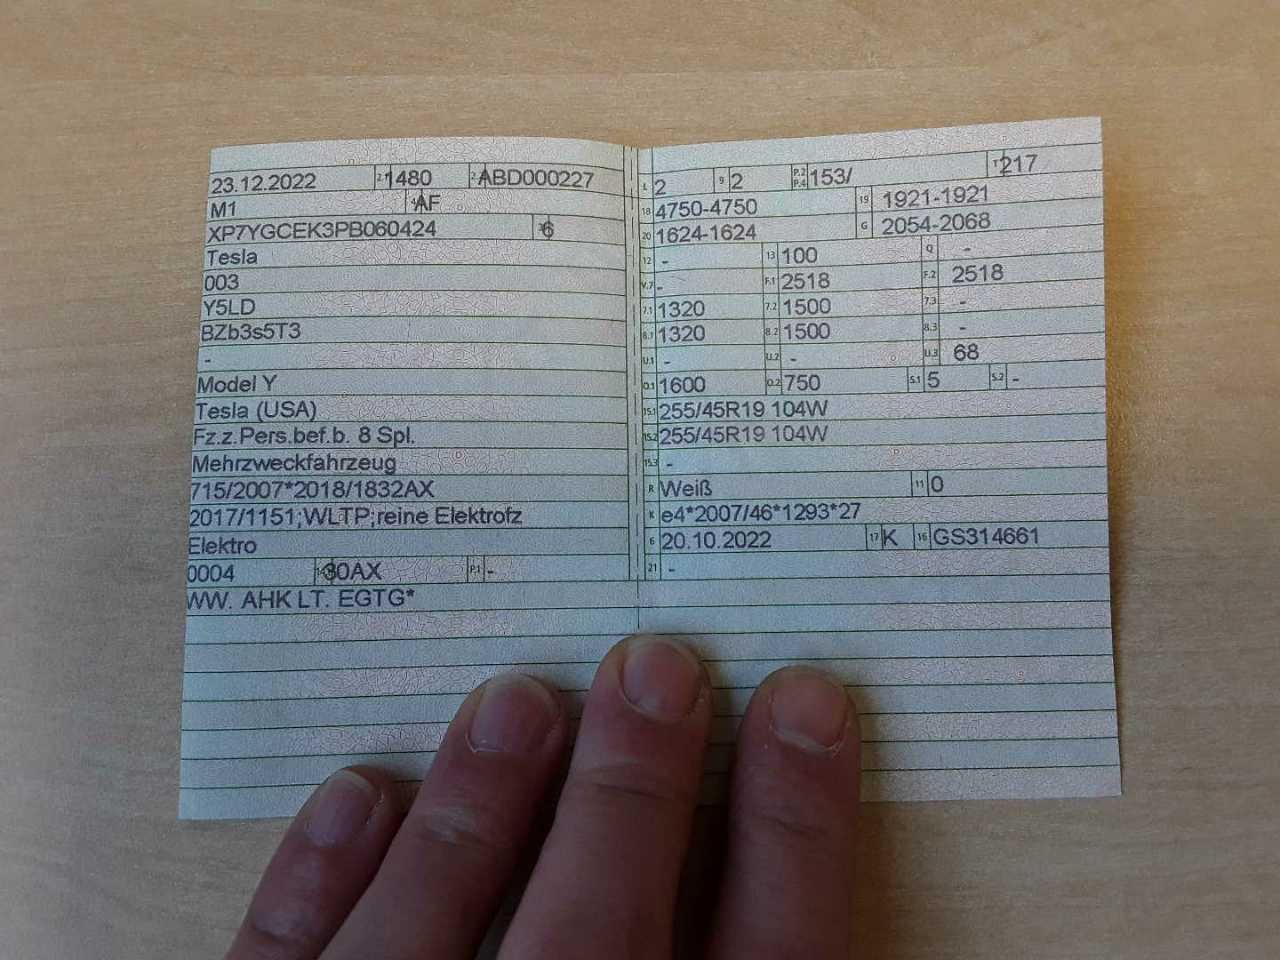 23.12.2022 2.1 1480 2 ABD000227
M1 4 AF
XP7YGCEK3PB060424 3 6
Tesla
003
Y5LD
BZb3s5T3
-
Model Y
Tesla (USA)
Fz.z.Pers.bef.b. 8 Spl.
Mehrzweckfahrzeug
715/2007*2018/1832AX
2017/1151;WLTP;reine Elektrofz
Elektro
0004 30AX P.1 -
WW. AHK LT. EGTG*
L 2 9 2 P.2 P.4 153/ T 217
18 4750-4750 19 1921-1921
20 1624-1624 G 2054-2068
12 - 13 100 Q -
V.7 - F.1 2518 F.2 2518
7.1 1320 7.2 1500 7.3 -
8.1 1320 8.2 1500 8.3 -
U.1 - U.2 - U.3 68
O.1 1600 O.2 750 S.1 5 S.2 -
15.1 255/45R19 104W
15.2 255/45R19 104W
15.3 -
R Weiß 11 0
K e4*2007/46*1293*27
6 20.10.2022 17 K 16 GS314661
21 -